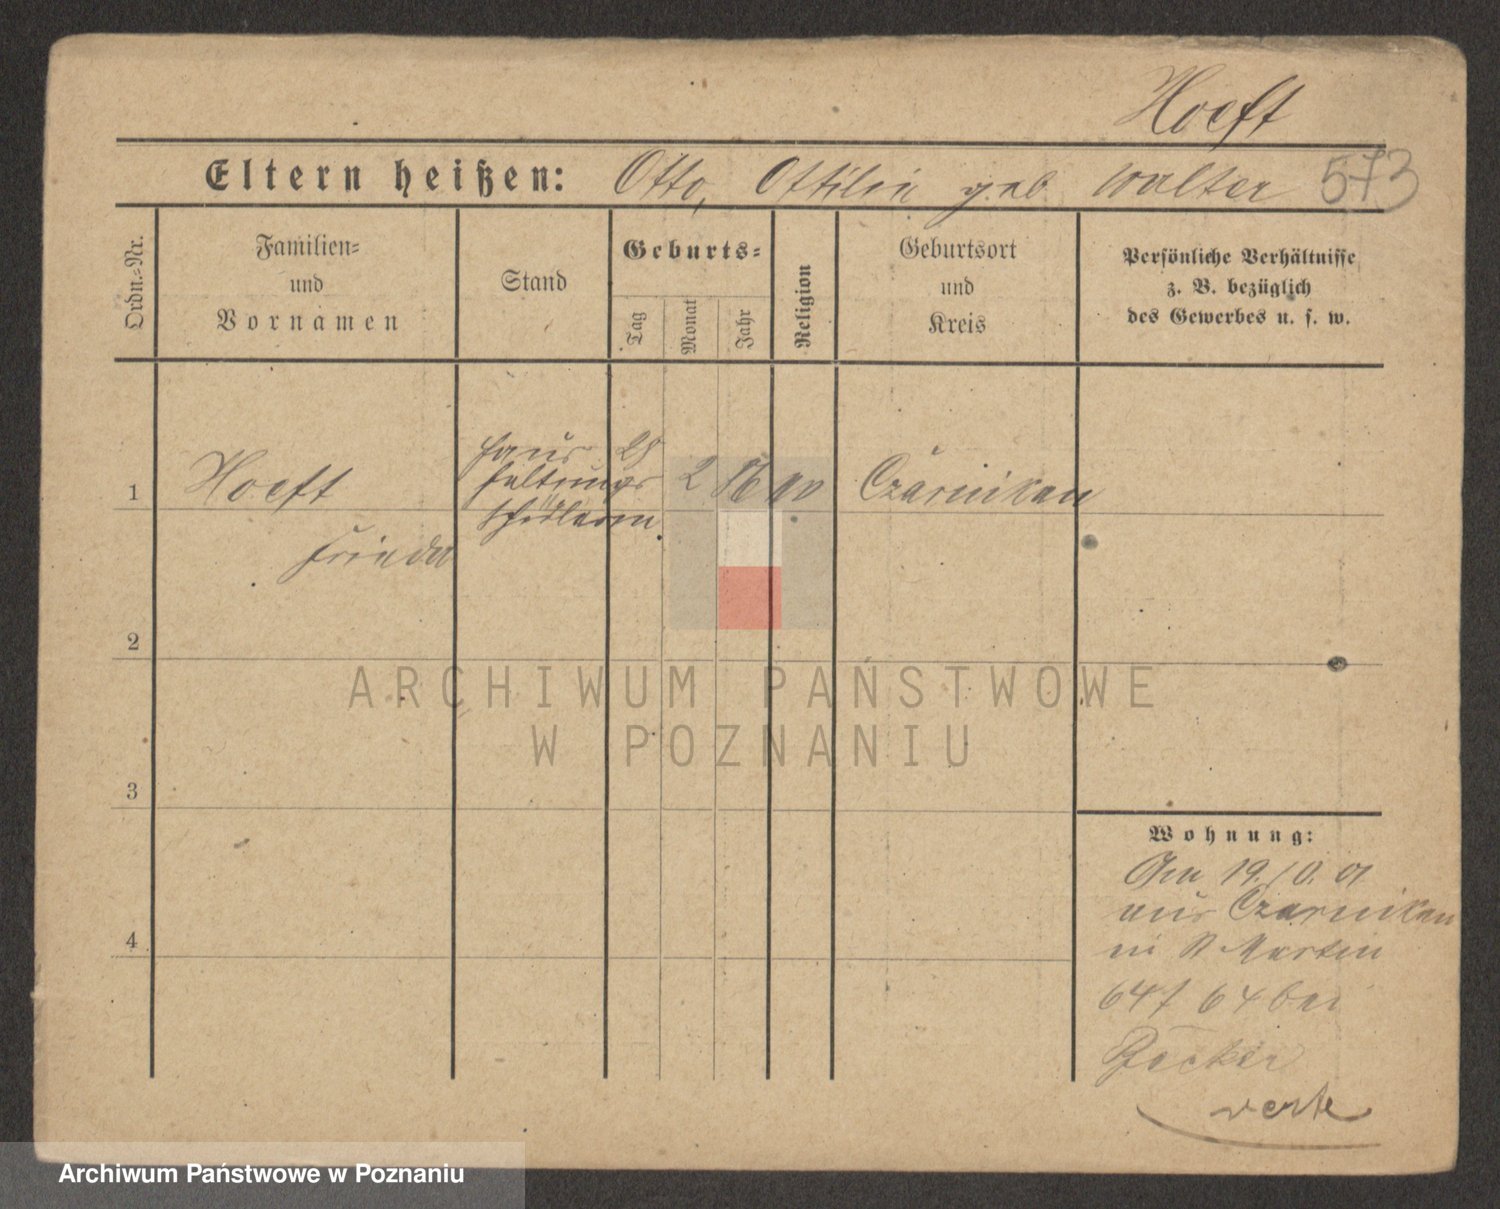 Hoeft
Eltern heißen: Otto, Ottilie geb Walter 573
Ordn.=Nr.
Familien=
und
Vornamen
Stand
Geburts=
Tag
Monat
Jahr
Religion
Geburtsort
und
Kreis
Persönliche Verhältnisse
z. B. bezüglich
des Gewerbes u. s. w.
1
Hoeft
Frieda
Haus
haltungs
schülerin
2
Czarnikau
2
3
4
ARCHIWUM PAŃSTWOWE
W POZNANIU
Wohnung:
Am 19./0. 01
aus Czarnikau
in St Martin
64 bei
Archiwum Państwowe w Poznaniu